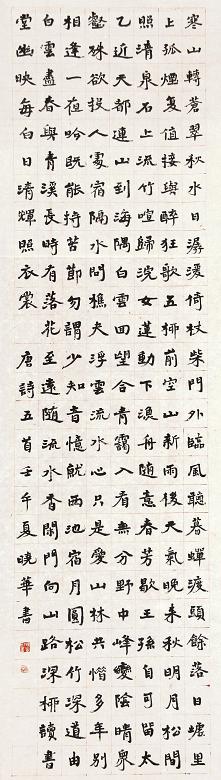 寒山轉蒼翠秋水日潺湲倚杖柴門外臨風聽暮蟬渡頭餘落日墟里
上孤煙復值接輿醉狂歌五柳前空山新雨後天氣晚來秋明月松間
照清泉石上流竹喧歸浣女蓮動下漁舟隨意春芳歇王孫自可留太
乙近天都連山到海隅白雲回望合青靄入看無分野中峰變陰晴衆
壑殊欲投人處宿隔水問樵夫浮雲流水心只是愛山林共惜多年別
相逢一夜吟既能持苦節勿謂少知音憶就西池宿月圓松竹深道由
白雲盡春與青溪長時有落花至遠隨流水香閑門向山路深柳讀書
堂幽映每白日清輝照衣裳 唐詩五首壬午夏曉華書